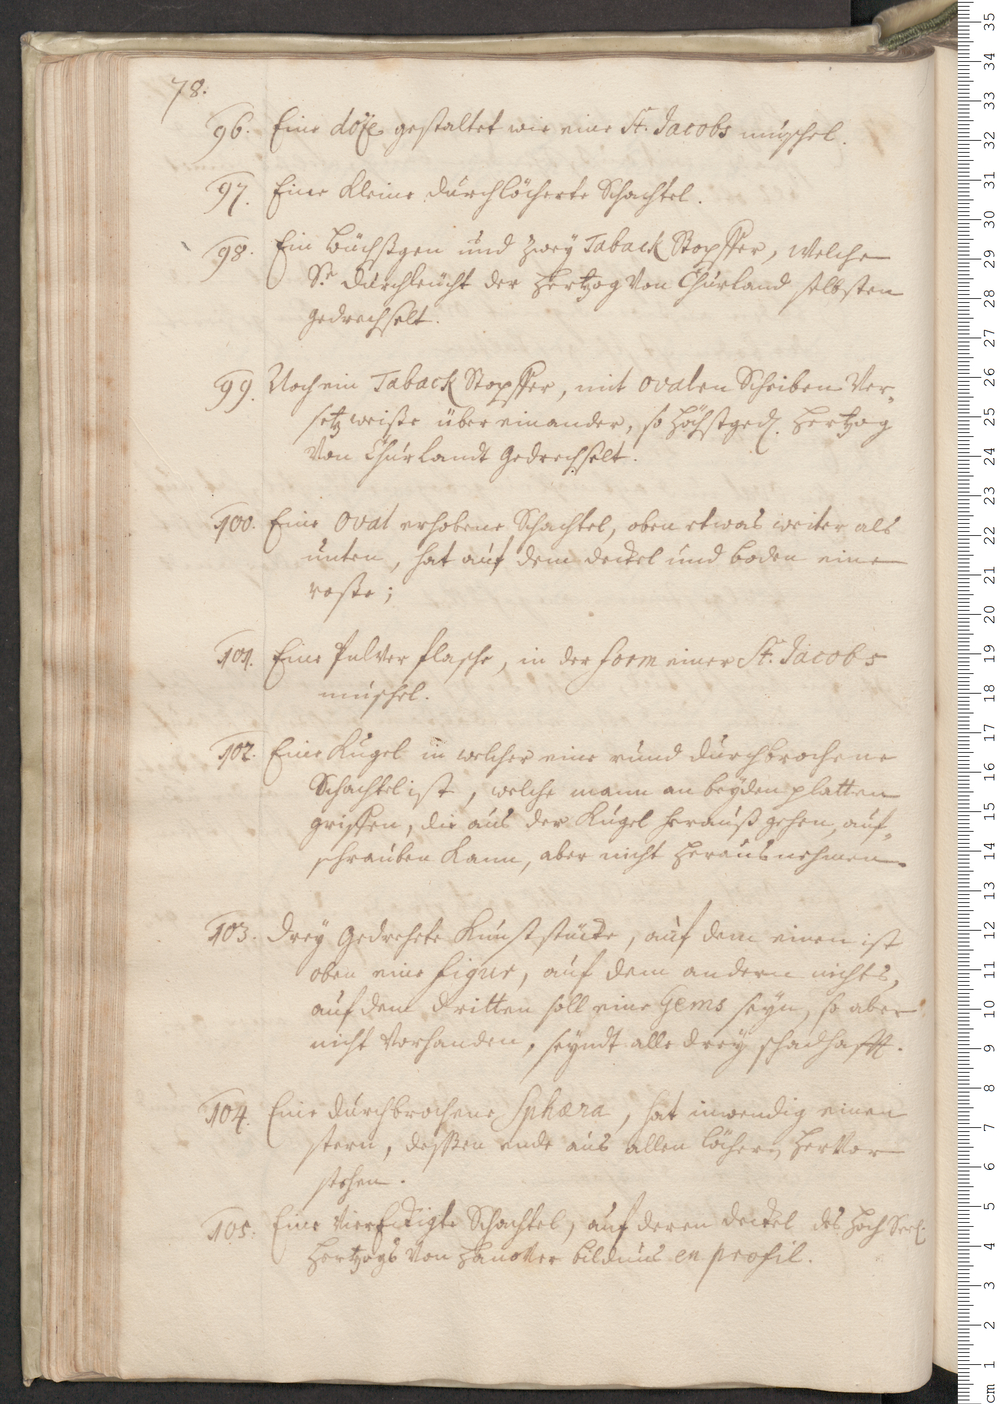 78.
96. Eine döse gestaltet wie eine St. Jacobs muschel.
97. Eine kleine durchlöcherte Schachtel.
98. Ein büchßgen und zweÿ Taback Stopffer, welche
Sr. Durchleücht der Hertzog von Churland selbsten
gedrechselt.
99. Noch ein Taback Stopffer, mit ovalen Scheiben ver-
setz weiße über einander, so höchstged. Hertzog
von Churlandt gedrechselt.
100. Eine oval erhobene Schachtel, oben etwas weiter als
unten, hat auf dem deckel und boden eine
roße;
101. Eine Pulver flasche, in der form einer St. Jacobs
muschel.
102. Eine Kugel in welcher eine rund durchbrochene
Schachtel ist, welche mann an beÿden platten
griffen, die aus der Kugel herauß gehen, auf-
schrauben kann, aber nicht heraus nehmen.
103. dreÿ gedrehete Kunststücke, auf dem einen ist
oben eine figur, auf dem andern nichts,
auf dem dritten soll eine Gems seÿn, so aber
nicht vorhanden, seÿndt alle dreÿ schadhafft.
104. Eine durchbrochene Sphæra, hat inwendig einen
stern, deßen ende aus allen löchern hervor
stehen.
105. Eine viereckigte Schachtel, auf deren deckel des hoch Seel.
Hertzogs von Hanover bildnus en profil.
35
34
33
32
31
30
29
28
27
26
25
24
23
22
21
20
19
18
17
16
15
14
13
12
11
10
9
8
7
6
5
4
3
2
1
cm